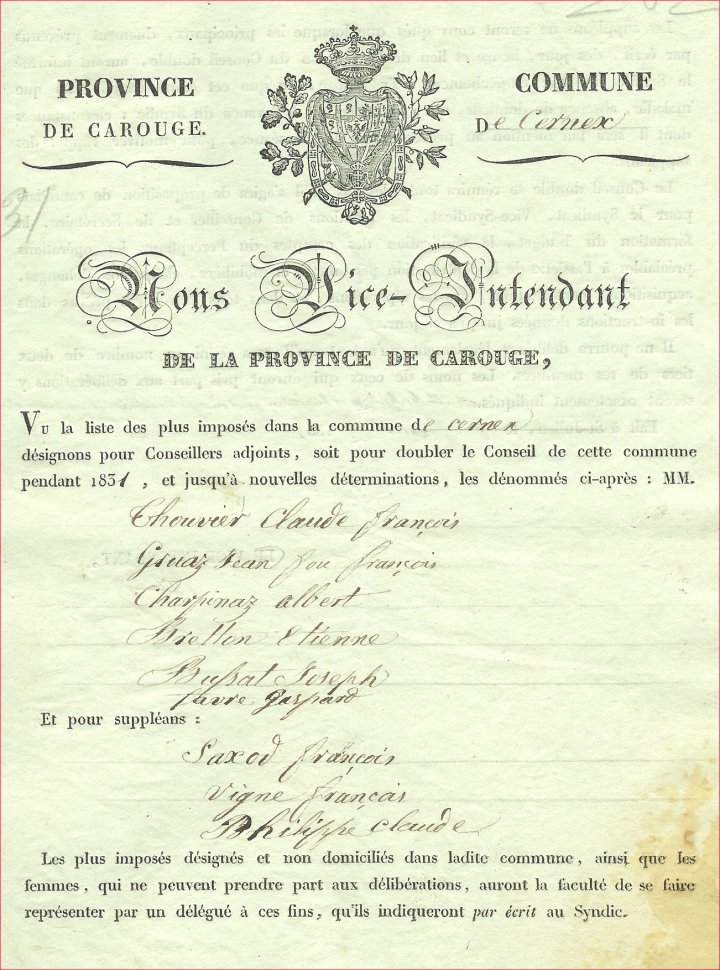 PROVINCE
DE CAROUGE.
COMMUNE
De Cernex
31
Nous Vice-Intendant
DE LA PROVINCE DE CAROUGE,
Vu la liste des plus imposés dans la commune de cernex
désignons pour Conseillers adjoints, soit pour doubler le Conseil de cette commune
pendant 1831, et jusqu'à nouvelles déterminations, les dénommés ci-après : MM.
Chouvier Claude françois
Gruaz Jean feu françois
Charpinaz albert
Bretton Etienne
Bussat Joseph
favre Gaspard
Et pour suppléans :
Saxod françois
Vigne françois
Philippe Claude
Les plus imposés désignés et non domiciliés dans ladite commune, ainsi que les
femmes, qui ne peuvent prendre part aux délibérations, auront la faculté de se faire
représenter par un délégué à ces fins, qu'ils indiqueront par écrit au Syndic.